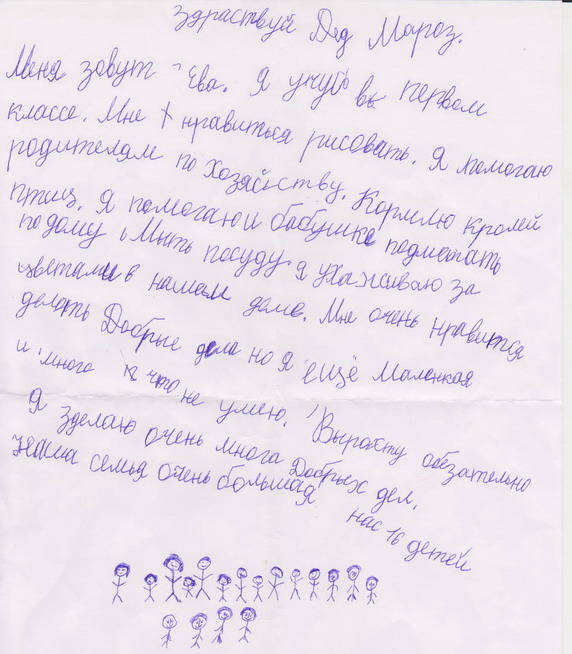 Здраствуй Дед Мароз.
Меня зовут Ева. Я учусь в первом
классе. Мне нравиться рисовать. Я помогаю
родителям по хозяйству. Кормлю кролей
птиц. Я помогаю и бабушке подметать
по дому, Мыть посуду Я ухаживаю за
цветами в нашем доме. Мне очень нравится
делать Добрые дела но я ещё Маленкая
и много что не умею. Вырасту обезательно
Я зделаю очень многа Добрых дел.
Наша семья очень большая нас 16 детей